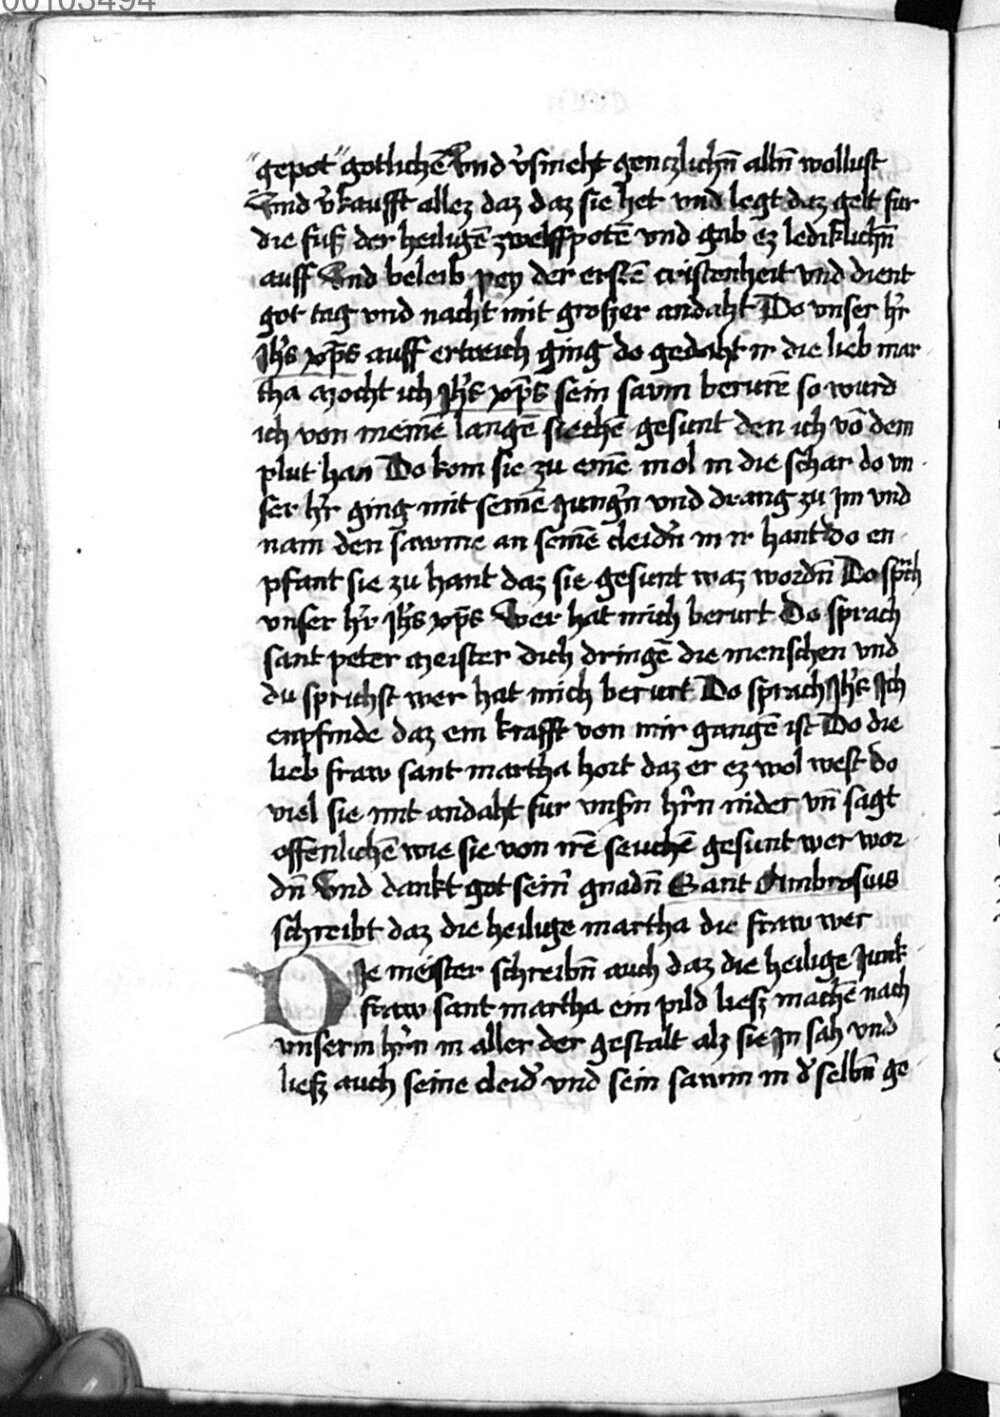 00103494
"gepot" gotlichē Vnd v͛smeht genczlichn̄ alln̄ wollust
Vnd v͛kaufft allez daz daz sie het vnd legt daz gelt fur
die fuß der heiligē zwelffpotē vnd gab ez lediklichn̄
auff Vnd beleib pey der erstē cristenheit vnd dient
got tag vnd nacht mit großer andaht Do vnser hr̄
Jhs xp̄s auff ertreich ging do gedaht ir die lieb mar
tha mocht ich Jhs xp̄s sein savm berurē so wurd
ich von meinē langē siechē gesunt den ich vō dem
plut han Do kom sie zu einē mol in die schar do vn
ser hr̄ ging mit seinē jungn̄ vnd drang zu im vnd
nam den sawme an seinē cleidn̄ in ir hant do en
pfant sie zu hant daz sie gesunt waz wordn̄ Do sprach
vnser hr̄ Jhs xp̄s Wer hat mich berurt Do sprach
sant peter meister dich dringē die menschen vnd
du sprichst wer hat mich berurt Do sprach Jhs Jch
enpfinde daz ein krafft von mir gangē ist Do die
lieb fraw sant martha hort daz er ez wol west do
viel sie mit andaht fur vnsn̄ hrn̄ nider vn̄ sagt
offenlichē wie sie von irē seuchē gesunt wer wor
dn̄ Vnd dankt got sein͛ gnadn̄ Sant Ambrosius
schreibt daz die heilige martha die fraw wer
DJe meister schreibn̄ auch daz die heilige Junk
fraw sant martha ein pild liesz machē nach
vnserm hrn̄ in aller der gestalt alz sie Jn sah vnd
liesz auch seine cleid͛ vnd sein sawm in d͛ selbn̄ ge